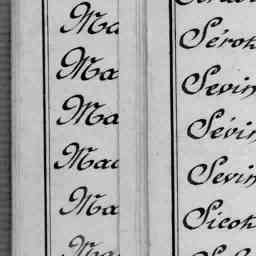 Ma
Ma
Ma
Mac
Ma
Ma
Sérok
Sevin
Sévin
Sevin
Sicot